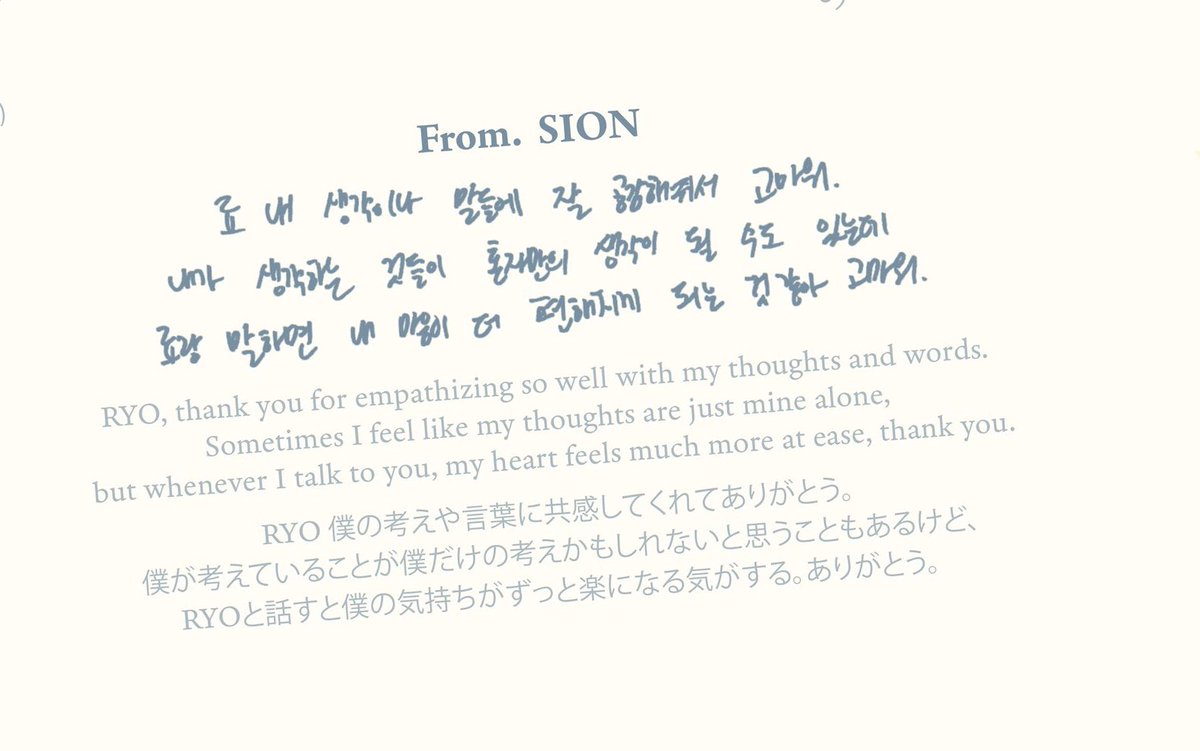 From. SION
료 내 생각이나 말들에 잘 공감해줘서 고마워.
내가 생각하는 것들이 혼자만의 생각이 될 수도 있는데
료랑 말하면 내 마음이 더 편해지게 되는 것 같아 고마워.
RYO, thank you for empathizing so well with my thoughts and words.
Sometimes I feel like my thoughts are just mine alone,
but whenever I talk to you, my heart feels much more at ease, thank you.
RYO 僕の考えや言葉に共感してくれてありがとう。
僕が考えていることが僕だけの考えかもしれないと思うこともあるけど、
RYOと話すと僕の気持ちがずっと楽になる気がする。ありがとう。